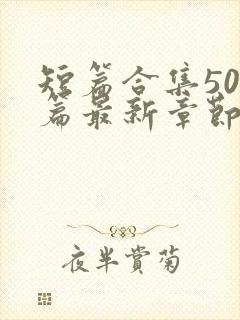 短篇合集50
篇最新章節
夜半赏菊